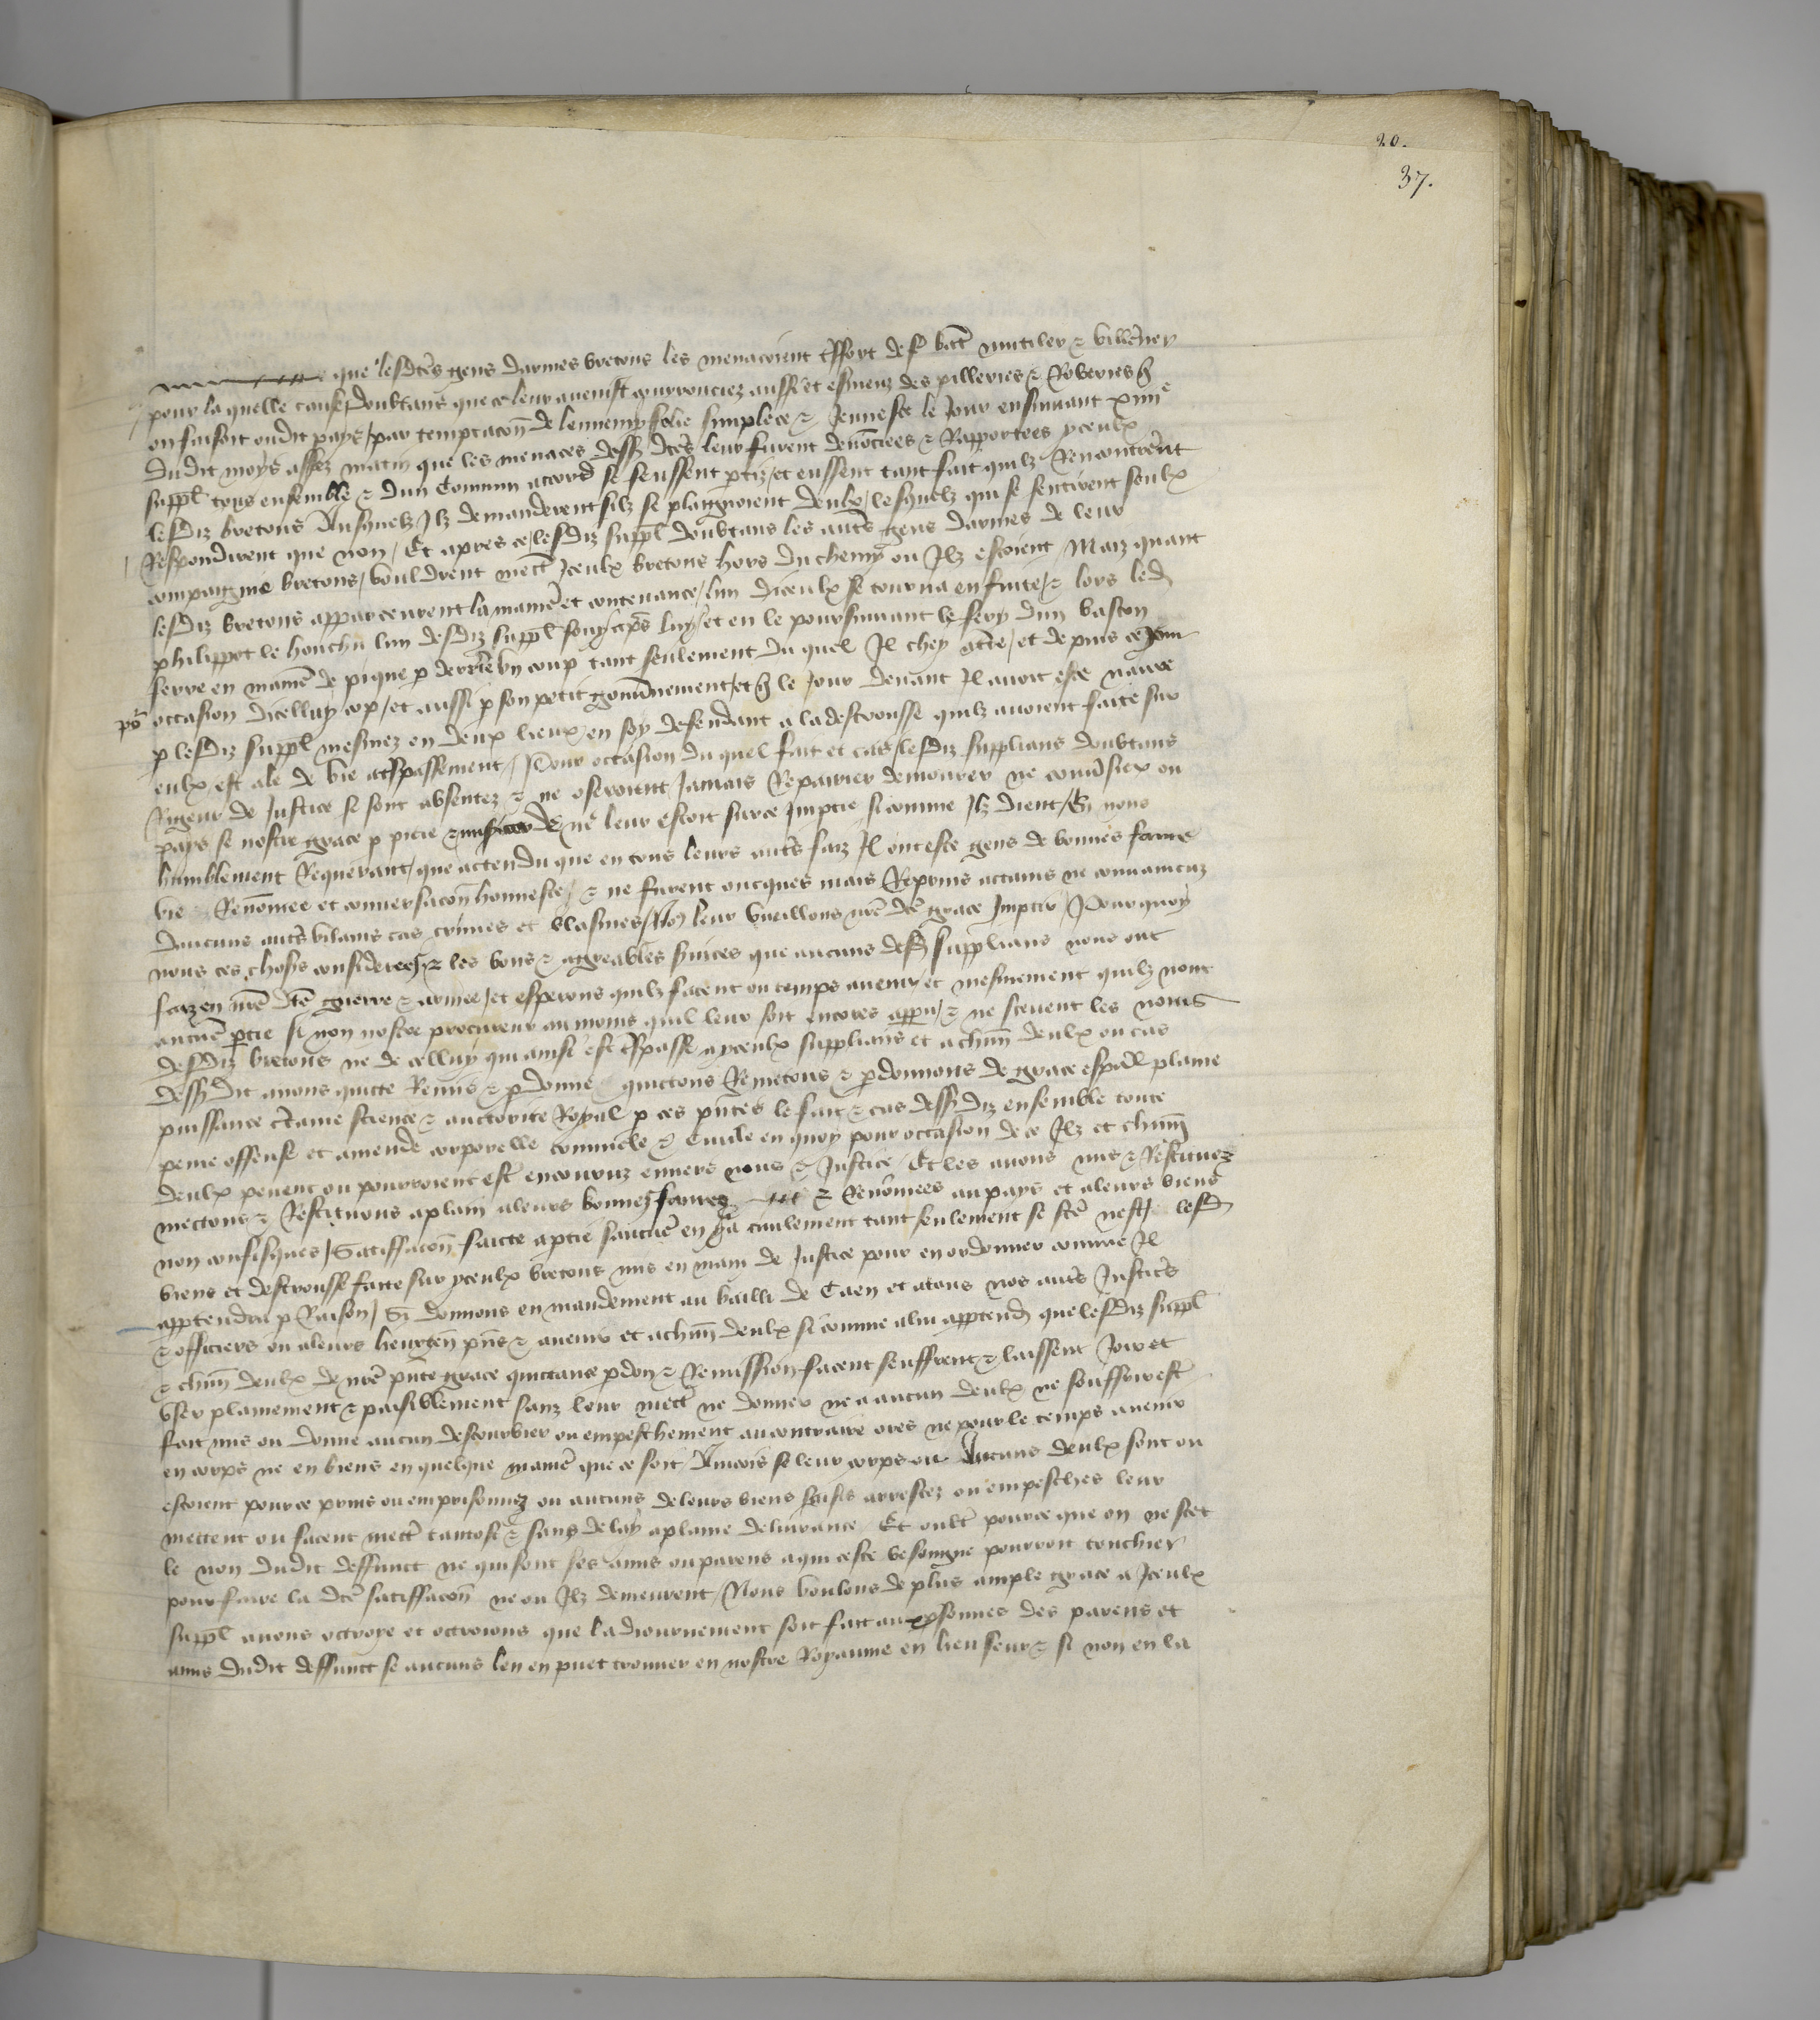 20.
37.
que lesdces gens darmes bretons les menacoient effort de s batt mutiler & villener
pour la quelle cause doubtans que ce leur avenist courrouciez aussi et esmeuz des pilleries & roberies q
on faisoit oudit pays / par temptacon de lennemy folie simplece & Jennesce le Jour ensuivant xiiii e
dudit moys assez matin que les menaces dess dces leur furent denociees & Rapportees yceulx
suppl tous ensemble & dun Commun accord se feussent ptiz / et eussent tant fait quilz Rencontrent
lesdiz bretons Ausquelz Ilz demanderent silz se plaignoient deulx / lesquelz qui se sentirent seulx
Respondirent que non / Et apres ce lesdiz suppl doubtans les autes gens darmes de leur
compaignie bretons / vouldrent mectt Iceulx bretons hors du chemin ou Ilz estoient / Maiz quant
lesdiz bretons apparceurent la manie et contenance / lun diceulx se tourna en fuite / & lors led
philippot le houchu lun desdiz suppl fouy aps luy / et en le poursuivant le fery dun baston
ferre en manie de pique p derrie un coup tant seulement du quel Il chey a tre / et depuis ce Jour
po occasion dicelluy cop / et aussi p son petit gounement / et q le Jour devant Il avoit este navre
p lesdiz suppl mesmez en deux lieux / en soy defendant a la destrousse quilz avoient faite sur
eulx est ale de vie a tspassement / Pour occasion du quel fait et cas / lesdiz supplians doubtans
Rigeur de Justice se sont absentez & ne oseroient Jamais Repairier demourer ne converser ou
pays se nostre grace p pitie & misicorde ne leur estoit sur ce Imptie si comme Ilz dient / Si nous
humblement Requerant / que actendu que en tous leurs autes faiz Il ont este gens de bonnes fame
vie Renomee et conversacon honneste / & ne furent oncques mais Reprins actains ne convaincuz
daucuns autes vilains cas crimes et blasmes / Nous leur vueillons nre dce grace Imptir / Pourquoy
nous ces choses considerees / & les bons & agreables suices que aucuns desd supplians nous ont
faiz en nre dce guerre & armee / et esperons quilz facent ou temps avenir et mesmement quilz nont
aucue ptie si non nostre procureur au moins quil leur soit encores appu / & ne scevent les noms
desdiz bretons ne de celluy qui ainsi est tspasse a yceulx supplians et a chun deulx ou cas
dess dit avons quicte Remis & pdonne quictons Remetons & pdonnons de grace espal plaine
puissance ctaine science & auctorite Royal p ces pntes le fait & cas dess diz ensemble toute
peine offense et amende corporelle criminele & Civile en quoy pour occasion de ce Ilz et chun
deulx pevent ou pourroient est encouruz envers nous & Justice / Et les avons mis & Restituez
mectons & Restituons a plain a leurs bonnez fames & Renomees au pays et a leurs biens
non confisques / Satiffacon faicte a ptie sauctue en ga civilement tant seulement se fce nest / lesd
biens et destrousse faite sur yceulx bretons mis en main de Justice pour en ordonner comme Il
apptendra p Raison / Si donnons en mandement au bailli de Caen et a tous nos autes Justices
& officiers ou a leurs lieuxten pns & avenir et a chun deulx si comme a lui apptend que lesdiz suppl
& chun deulx de nre pnte grace quictance pdon & Remission facent seuffrent & laissent Jouir et
user plainement & paisiblement sanz leur mectt ne donner ne a aucun deulx ne souffrir est
fait mis ou donne aucun destourbier ou empeschement au contraire ores ne pour le temps avenir
en corps ne en biens en quelque manie que ce soit Aincois se leur corps ou Aucuns deulx sont ou
estoient pour ce prins ou emprisonnez ou aucuns de leurs biens saisis arrestez ou empesches leur
mectent ou facent mectt tantost & sanz delay a plaine delivrance Et oult pource que on ne scet
le non dudit deffunct ne qui sont ses amis ou parens a qui ceste besoingne pourroit touchier
pour faire la dce satiffacon ne ou Ilz demeurent / Nous voulons de plus ample grace a Iceulx
suppl avons octroye et octroions que ladiournement soit fait aux psonnes des parens et
amis dudit deffunct se aucuns len en puet trouver en nostre Royaume en lieu seur & si non en la